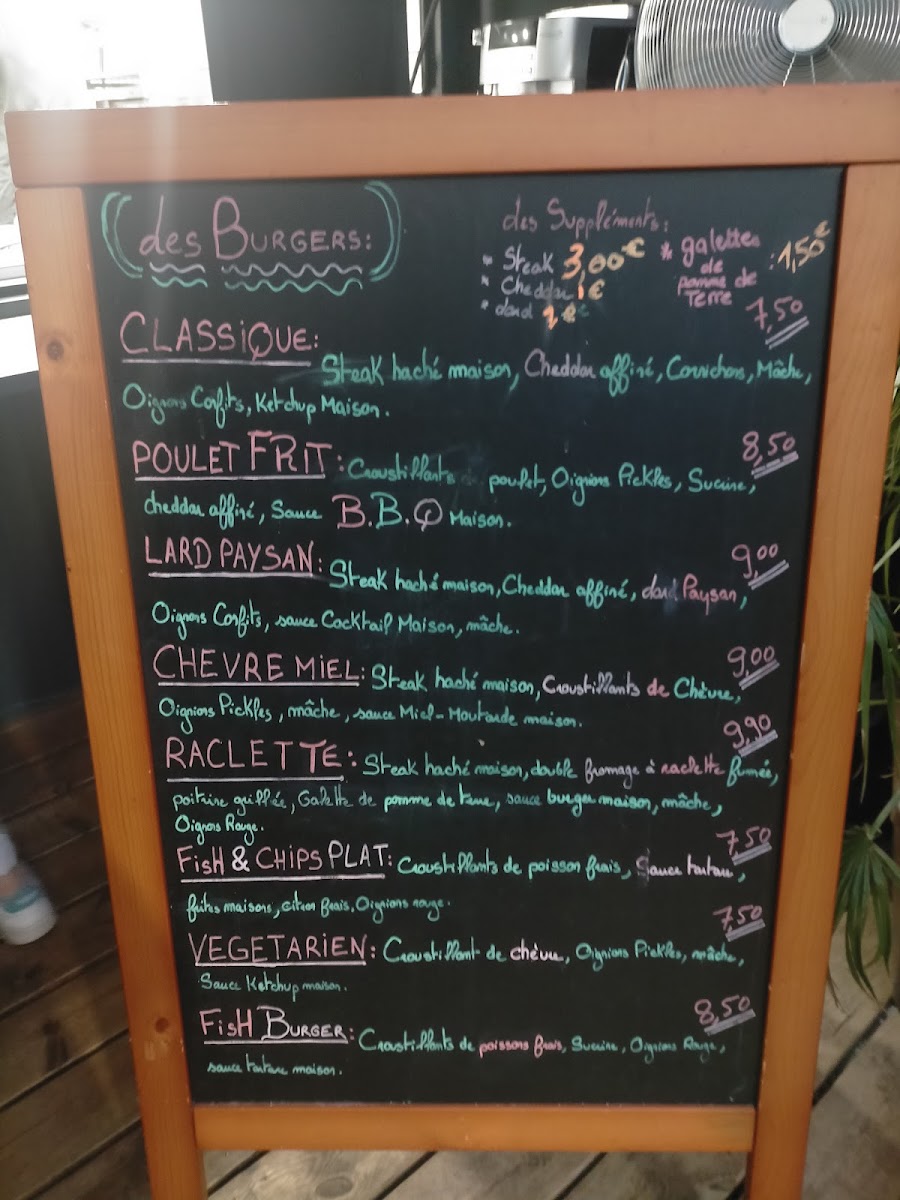 des BURGERS:
des Suppléments:
* Steak 3,00€
* Cheddar 1€
* Lard
* galettes de pomme de Terre : 1,50€
CLASSIQUE: 7,50
Steak haché maison, Cheddar affiné, Cornichons, Mâche,
Oignons Confits, Ketchup Maison.
POULET FRIT: 8,50
Croustillants de poulet, Oignions Pickles, Sucrine,
cheddar affiné, Sauce B.B.Q Maison.
LARD PAYSAN: 9,00
Steak haché maison, Cheddar affiné, Lard Paysan,
Oignons Confits, sauce Cocktail Maison, mâche.
CHEVRE MIEL: 9,00
Steak haché maison, Croustillants de Chèvre,
Oignions Pickles, mâche, sauce Miel-Moutarde maison.
RACLETTE: 9,90
Steak haché maison, double fromage à raclette fumée,
poitrine grillée, Galette de pomme de terre, sauce burger maison, mâche,
Oignons Rouge.
FISH & CHIPS PLAT: 7,50
Croustillants de poisson frais, Sauce tartare,
frites maisons, citron frais, Oignions rouge.
VEGETARIEN: 7,50
Croustillant de chèvre, Oignions Pickles, mâche,
Sauce Ketchup maison.
FISH BURGER: 8,50
Croustillants de poissons frais, Sucrine, Oignons Rouge,
sauce tartare maison.